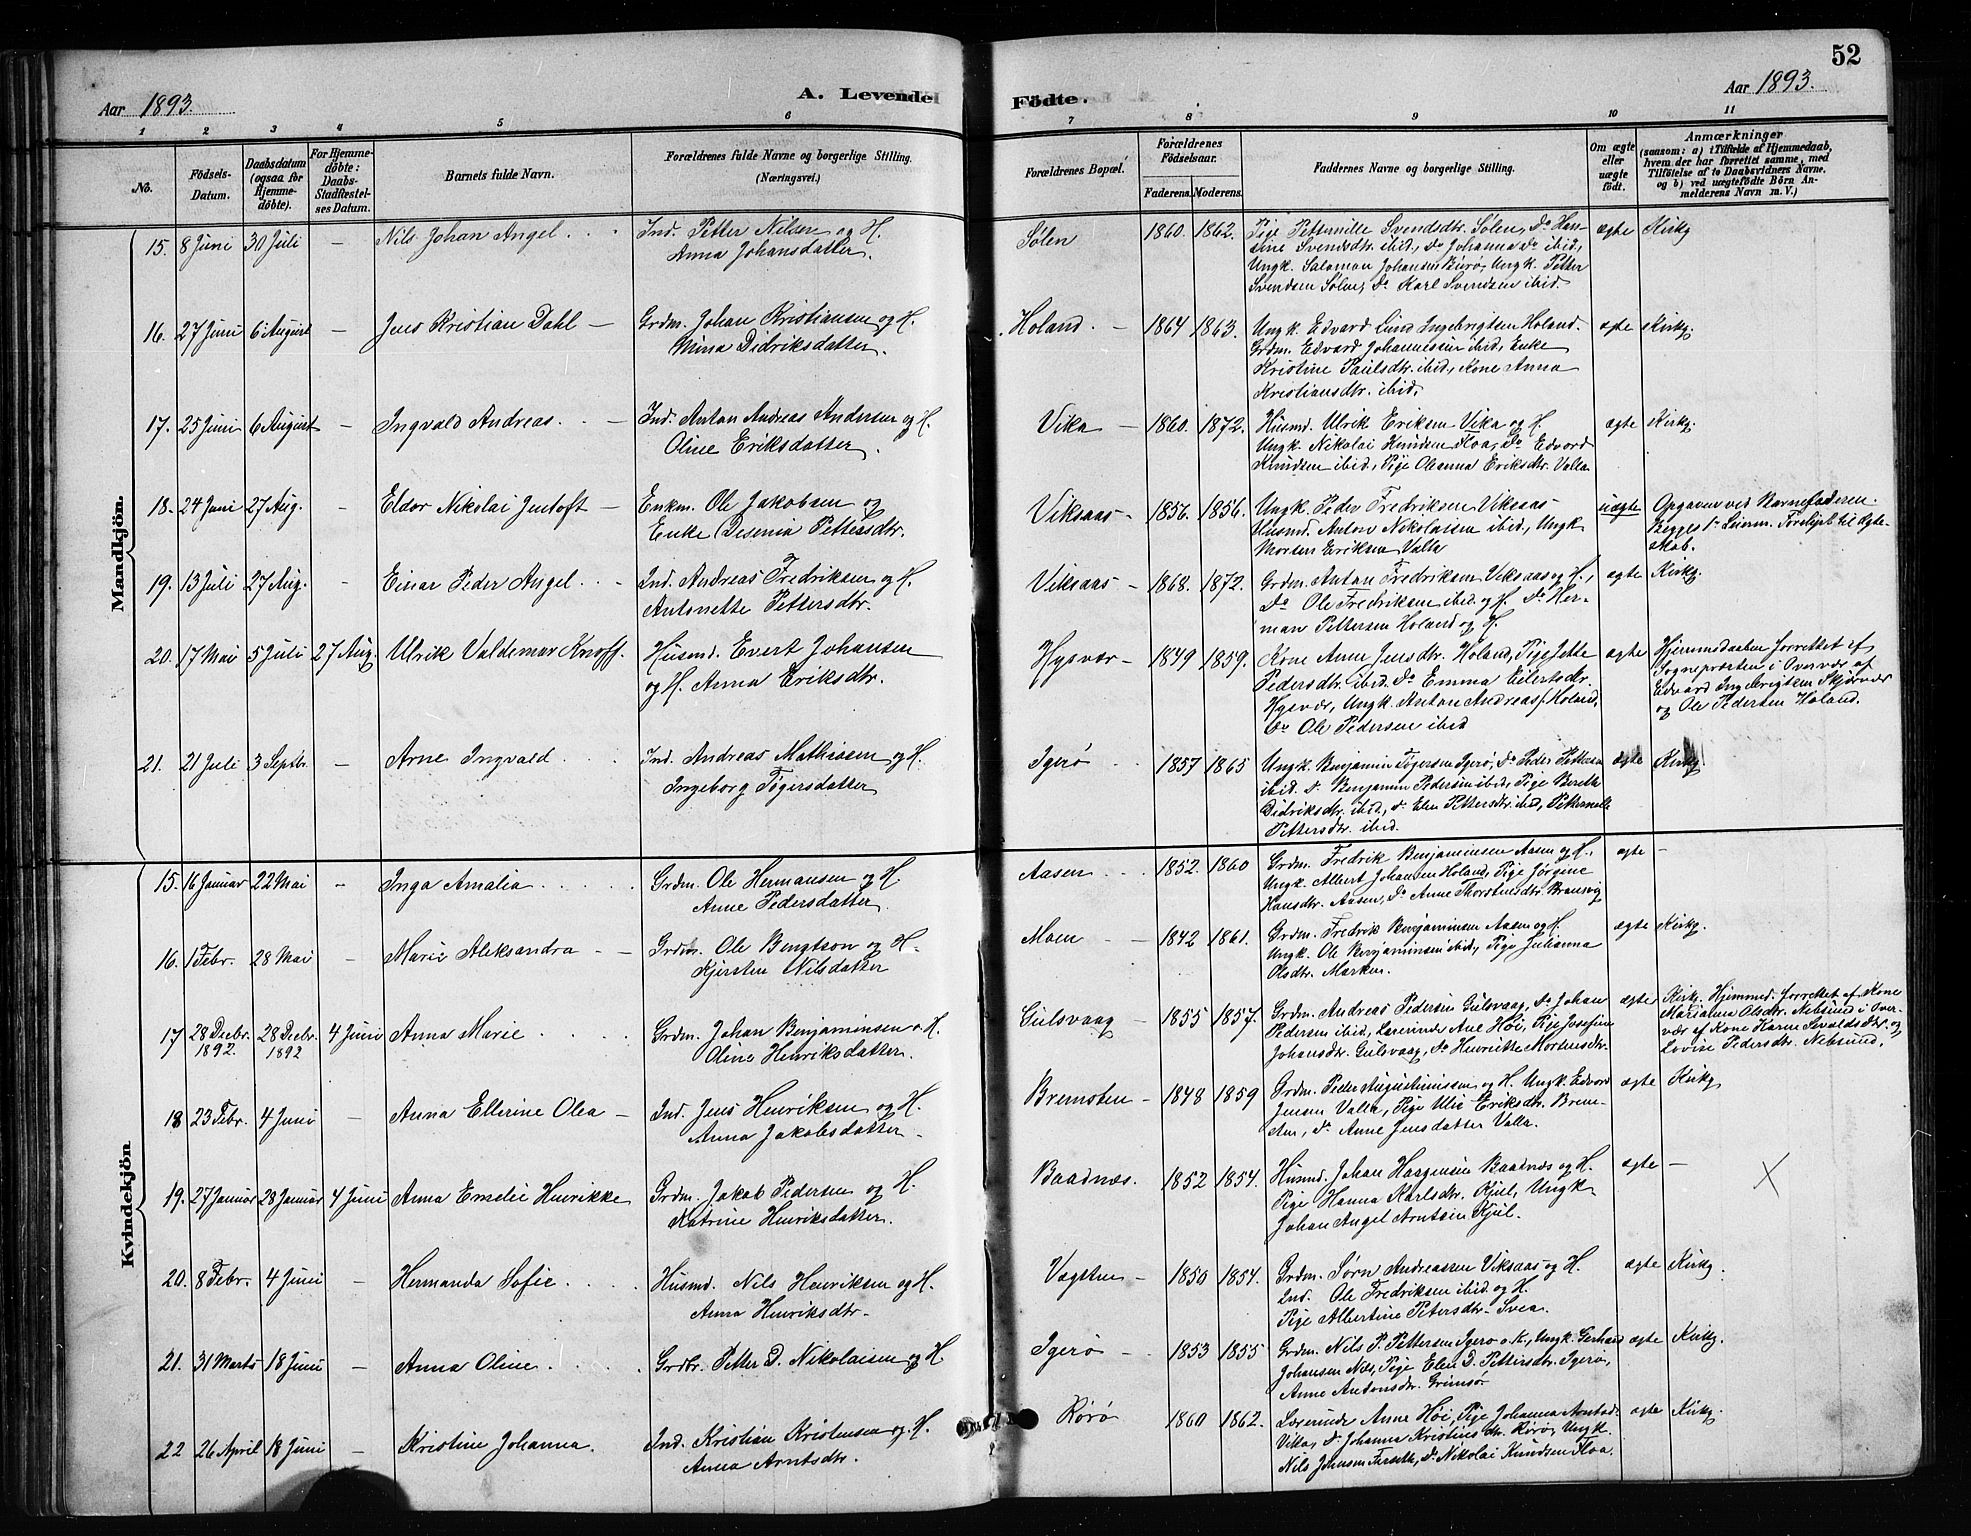 52
Aar 1893. A. Levende Födte. Aar 1893.
1 2 3 4 5 6 7 8 9 10 11
No. Födsels-Datum. Daabsdatum (ogsaa for Hjemme-döbte). For Hjemme-döbte: Daabs-Stadfæstel-ses Datum. Barnets fulde Navn. Forældrenes fulde Navne og borgerlige Stilling. (Næringsvei.) Forældrenes Bopæl. Forældrenes Födselsaar. Faderens. Moderens. Faddernes Navne og borgerlige Stilling. Om ægte eller uægte födt. Anmærkninger (saasom: a) i Tilfælde af Hjemmedaab, hvem der har forrettet samme, med Tilföielse af to Daabsvidners Navne, og b) ved uægtefödte Börn An-melderens Navn m. V.)
Mandkjön.
15. 8 Juni 30 Juli – Nils Johan Angel. Ind. Petter Nilsen og H. Sölen 1860. 1862. Pige Pettrnille Svendsdtr. Sölen, Do Han- ægte Kirkg
Anna Johansdatter. sine Svendsdtr. ibid, Do Johanna Do ibid,
Ungk. Salamon Johansen Burö, Ungk. Petter
Svendsen Sölen, Do Karl Svendsen ibid.
16. 27 Juni 6 August – Jens Kristian Dahl – Grdm. Johan Kristiansen og H. Holand. – 1864 1863. Ungk. Edvard Lund Ingebrigtsen Holand. ægte Kirkg.
Mina Didriksdatter. Grdm. Edvard Johannessen ibid, Enke
Kristine Paulsdtr. ibid, Kone Anna
Kristiansdtr. ibid.
17. 25 Juni 6 August – Ingvald Andreas. – Ind. Anton Andreas Andersen og H. Vika – 1860. 1872. Husmd. Ulrik Eriksen Vika og H. ægte Kirkg.
Oline Eriksdatter. Ungk. Nikolai Knudsen Floa, Do Edvard
Knudsen ibid, Pige Oleanna Eriksdtr. Valla
18. 24 Juni 27 Aug. – Eldor Nikolai Jentoft – Enkem. Ole Jakobsen og Viksaas – 1856. 1856. Ungk. Peder Fredriksen Viksaas uægte Opgaven ved Barnefaderen.
Enke Desenia Pettersdtr. Husmd. Anton Nikolaisen ibid, Ungk Begges 1ste Leierm. Forelsket til Ægte-
Morten Eriksen Valla skab.
19. 13 Juli 27 Aug. – Einar Peder Angel. Ind. Andreas Fredriksen og H. Viksaas – 1868. 1872. Grdm. Anton Fredriksen Viksaas og H., ægte Kirkg.
Antonette Pettersdtr. Do Ole Fredriksen ibid og H. Do Her-
man Pettersen Holand og H.
20. 17 Mai 5 Juli 27 Aug. Ulrik Valdemar Knoff. Husmd. Evert Johansen Hysvær – 1849 1859. Kone Anne Jensdtr. Holand, Pige Jette ægte Hjemmedaaben forrettet af
og H. Anna Eriksdtr. Pedersdtr. ibid. Do Emma Eilertsdtr. Sognepræsten i Overvær af
Hysvær, Ungk. Anton Andreas P. Holand, Edvard Ingebrigtsen Skjærvær
Do Ole Pedersen ibid og Ole Pedersen Holand.
21. 21 Juli 3 Septbr. Arne Ingvald Ind. Andreas Mathisen og H. Igerö 1857 1865 Ungk. Benjamin Tögersen Igerö, Do Peder Pettersen ægte Kirkg.
Ingeborg Tögersdatter ibid. Do Benjamin Pedersen ibid, Pige Berethe
Didriksdtr. ibid, Do Elen Pettersdtr. ibid, Pettrnelle
Pettersdtr. ibid.
Kvindekjön
15. 16 Januar 22 Mai – Inga Amalia. Grdm. Ole Hermansen og H. Aasen 1852. 1860 Grdm. Fredrik Benjaminsen Aasen og H., ægte –
Anne Pedersdatter. Ungk. Albert Johansen Holand, Pige Jörgine
Hansdtr. Aasen, Do Anne Thorstensdtr. Bransvig
16. 1 Febr. 28 Mai – Marie Aleksandra – Grdm. Ole Bengtson og H. Moen – 1842 1861. Grdm. Fredrik Benjaminsen Aasen og H. ægte Kirkg.
Kjersten Nilsdatter Ungk. Ole Benjaminsen ibid, Pige Julianna
Olsdtr. Marken.
17 28 Decbr. 1892. 28 Decbr. 1892 4 Juni Anna Marie Grdm. Johan Benjaminsen o. H. Gulsvaag – 1855 1857. Grdm. Andreas Pedersen Gulsvaag, Do Johan ægte Kirkg. Hjemmed. forrettet af Kone
Oline Henriksdatter. Pedersen ibid, Lærerinde Ane Höi, Pige Josefine Marianna Olsdtr. Nebsund i Over-
Johansdtr. Gulsvaag, Do Henriette Mortensdtr. vær af Kone Karen Sevaldsdtr. og
Lovise Pedersdtr. Nebsund.
18 23 Febr. 4 Juni Anna Ellerine Olea – Ind. Jens Henriksen og H. Bremsten – 1848 1859 Grdm. Peder Augustinussen og H. Ungk. Edvard ægte Kirkg
Anna Jakobsdatter – Jensen Valla, Pige Uli Eriksdtr. Brem-
sten, Do Anne Jensdatter Valla.
19. 27 Januar 28 Januar 4 Juni Anna Emelie Henrikke Grdm. Jakob Pedersen og H. Baadnæs. 1852 1854. Husmd. Johan Haagensen Baadnæs og H. ægte – X
Katrine Henriksdatter. Pige Hanna Karlsdtr. Kjul, Ungk
Johan Angel Arntsen Kjul.
20. 8 Febr. 4 Juni – Hermanda Sofie. Husmd. Nils Henriksen og H. Vægsten – 1850 1854. Grdm. Sörn Andreassen Viksaas og H. ægte Kirkg.
Anna Henriksdtr. Ind. Ole Fredriksen ibid. og H.
Pige Albertine Petersdtr. Svea.
21. 31 Marts 18 Juni – Anna Oline. Grdbr. Petter D. Nikolaisen og H Igerö – 1853 1855 Grdm. Nils P. Pettersen Igerö o. K., Ungk. Gerhard ægte Kirkg.
Johansen Næs, Pige Elen D. Pettersdtr. Igerö,
Anne Antonsdtr. Grimsö.
22 26 April 18 Juni – Kristine Johanna. Ind. Kristian Kristensen og H. Rörö 1860 1862. Lærerinde Anne Höi, Pige Johanna Arntsdtr. ægte Kirkg.
Anna Arntsdtr. Vika, Do Johanna Kristinsdtr. Rörö, Ungk.
Nils Jensen Forseth, Do Nikolai Knudsen Floa.